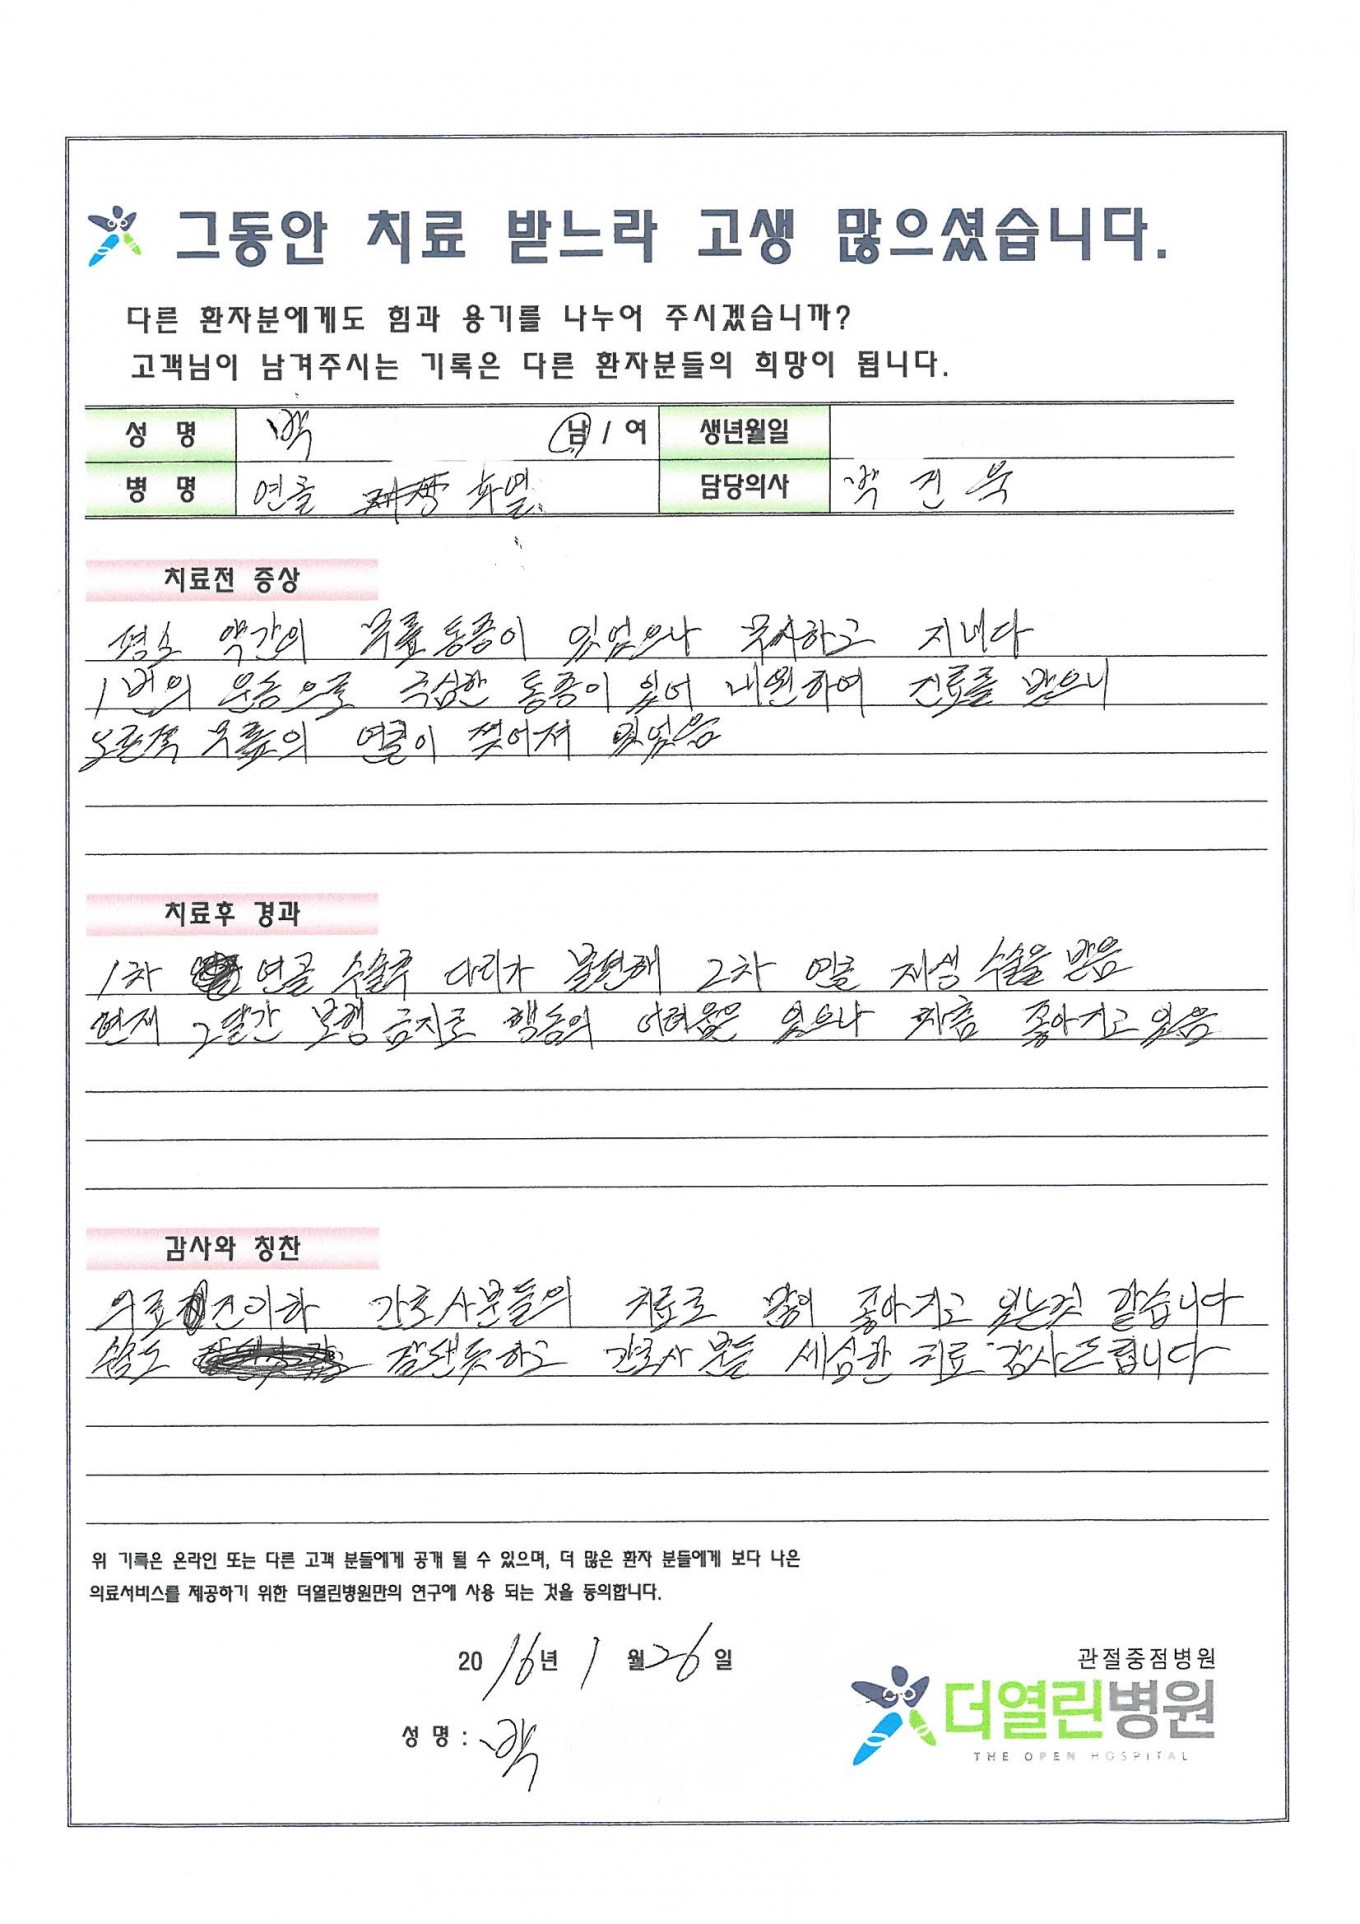 그동안 치료 받느라 고생 많으셨습니다.
다른 환자분에게도 힘과 용기를 나누어 주시겠습니까?
고객님이 남겨주시는 기록은 다른 환자분들의 희망이 됩니다.
성 명 백 남 / 여 생년월일
병 명 연골 파열 담당의사 백 진 욱
치료전 증상
평소 약간의 무릎통증이 있었으나 무시하고 지내다
1번의 운동으로 극심한 통증이 있어 내원하여 진료를 받으니
오른쪽 무릎의 연골이 찢어져 있었음
치료후 경과
1차 연골 수술후 다리가 불편해 2차 연골 재생 수술을 받음
현재 2달간 보행 금지로 행동의 어려움은 있으나 차츰 좋아지고 있음
감사와 칭찬
의료진이하 간호사분들의 치료로 많이 좋아지고 있는것 같습니다
수술도 잘된듯하고 간호사 분들 세심한 치료 감사드립니다
위 기록은 온라인 또는 다른 고객 분들에게 공개 될 수 있으며, 더 많은 환자 분들에게 보다 나은
의료서비스를 제공하기 위한 더열린병원만의 연구에 사용 되는 것을 동의합니다.
2016년 1월 26일
성 명 : 백
관절중점병원
더열린병원
THE OPEN HOSPITAL